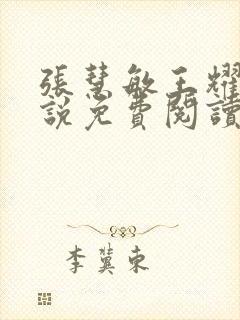 張慧敏王耀
說免費閱讀
李冀東